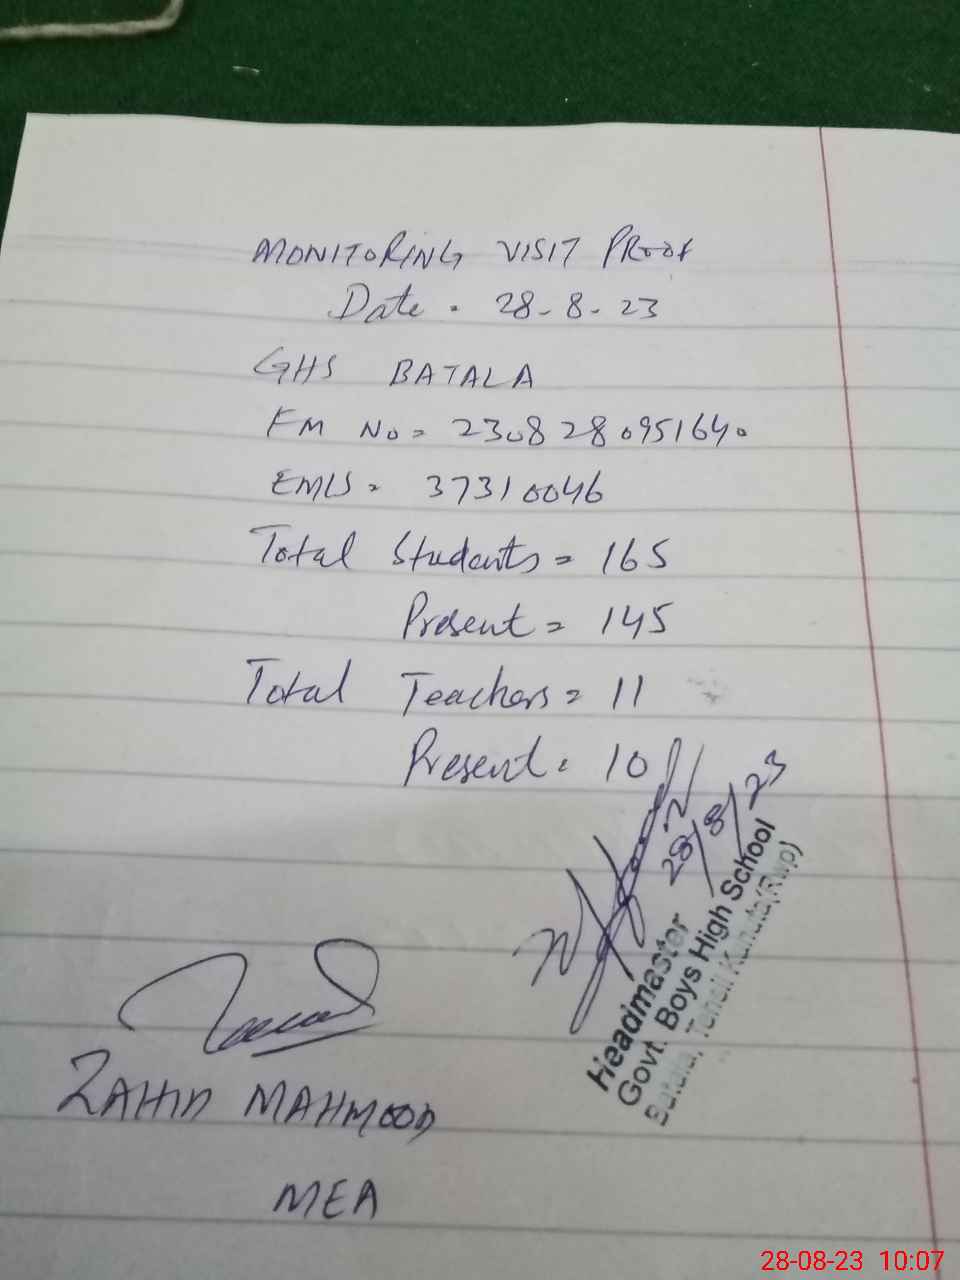 MONITORING VISIT PROOF
Date . 28-8-23
GHS BATALA
FM No = 2308280951640
EMIS = 37310046
Total Students = 165
Present = 145
Total Teachers = 11
Present = 10
28/8/23
Headmaster
Govt. Boys High School
Batala, Tehsil (Rwp)
ZAHID MAHMOOD
MEA
28-08-23 10:07